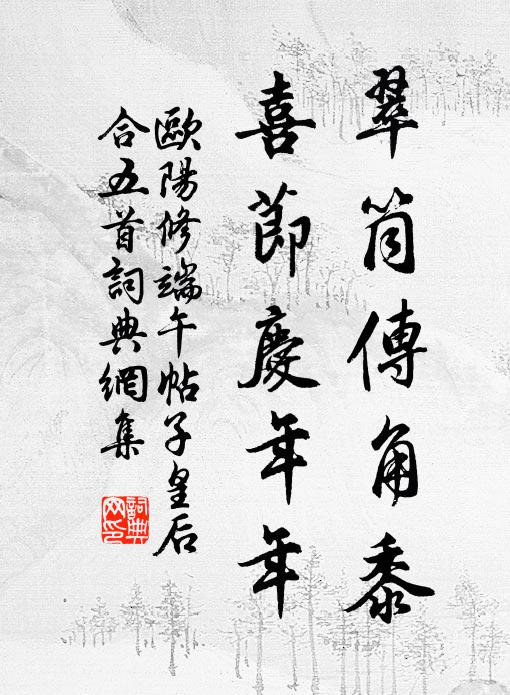 翠筒傳角黍
喜節慶年年
歐陽修端午帖子皇后
合五首詞典網集
詞典网印